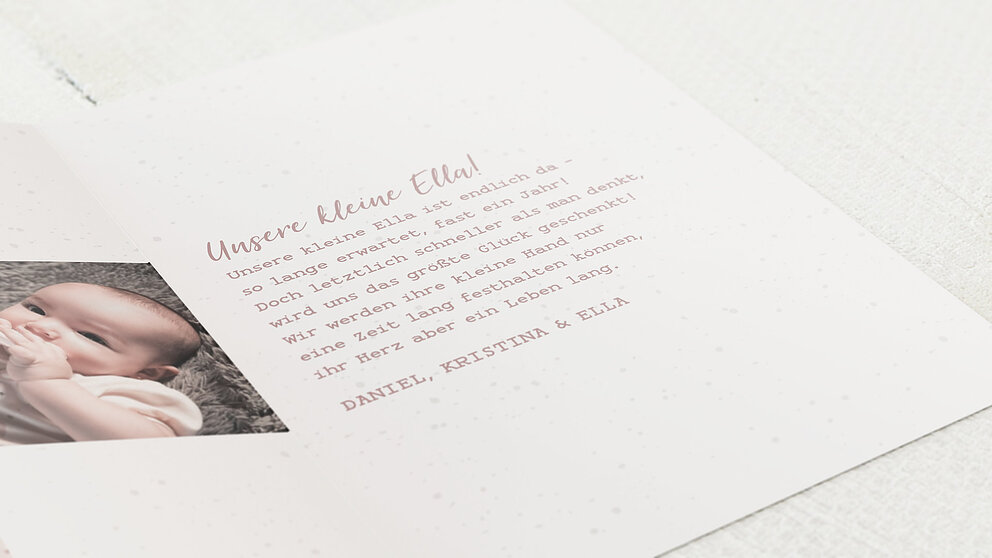 Unsere kleine Ella!
Unsere kleine Ella ist endlich da -
so lange erwartet, fast ein Jahr!
Doch letztlich schneller als man denkt,
wird uns das größte Glück geschenkt!
Wir werden ihre kleine Hand nur
eine Zeit lang festhalten können,
ihr Herz aber ein Leben lang.
DANIEL, KRISTINA & ELLA